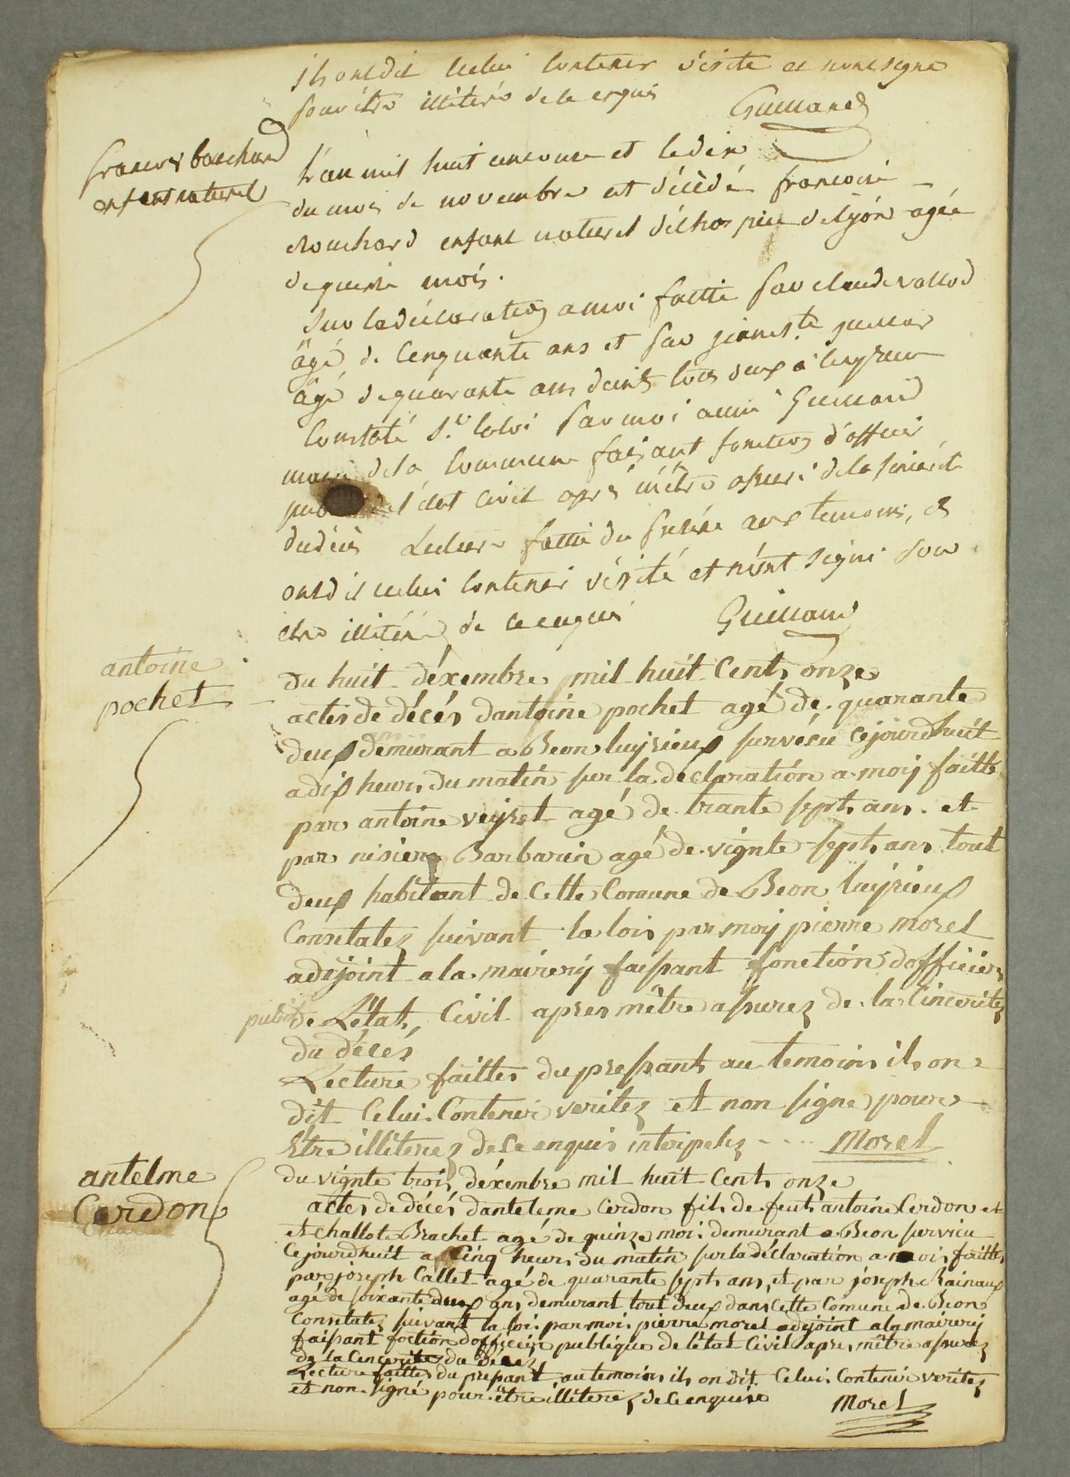 ils ont dit celui contenir vérité et nont signe
pour être illitéré de ce enquis Guilland
francois bouchard
enfant naturel
L'an mil huit cent onze et le dix
du mois de novembre est décédé francoise
Bouchard enfant naturel de l'hospice de lyon agée
de quinze mois.
Sur la déclaration a moi faitte par claude vallod
âgé de cinquante ans et par jeanB.te guillar
âgé de quarante ans dem.ts tous deux a luyrieu
Constaté s.t la loi par moi aimé Guilland
maire de la commune faisant fonction d'officier
pub de l'état civil après m'être assuré de la sincerité
du décès Lecture faitte du présent aux temoins, ils
ont dit celui contenir vérité et n'ont signé pour
etre illitéré de ce enquis Guilland
antoine
pochet
du huit déxembre mil huit Cents onze
actes de décés dantoine pochet agé de quarante
deux demurant a Beon luyrieux survécu cejourdhuit
a dix heurs du matin sur la déclaration a moij faitte
par antoine veyret agé de trante septs ans et
par nisier Barbarin agé de vignte septs ans tout
deux habitant de Cette Comune de Beon luyrieux
Constatez suivant la lois par moij pierre morel
adijoint a la mairerij faissant fonctión dofficier
public de Létat Civil apres mêtre assurez de la Sincerite
du décés
Lecture faittes du pressants au temoins ils on
dit Celui Contenir veritez et non signe pour
Etre illiterez de Ce enquis interpelez - ... Morel
antelme
Cerdon
du vignte trois déxembre mil huit Cents onze
actes de décés danteleme Cerdon fils de feuts antoine Cerdon et
et challote Brachet agé de quinze moi demurant a Beon survicu
Cejourdhuit a Cinq heurs du matin sur la déclaration a moi faitte
par joseph Callet agé de quarante septs ans et par joseph Rainaux
agé de soixante deux ans demurant tout deux dans Cette Comune de Beon
Constatez suivant la loi par moi pierre morel adijoint a la mairerij
faissant foction dofficier publique de létat Civil apres mêtre assurez
de la Cencerite du décez
Lecture faittes du pressant au temoins ils on dit Celui Contenir veritez
et non signé pour être illiterez de Ce enquise Morel